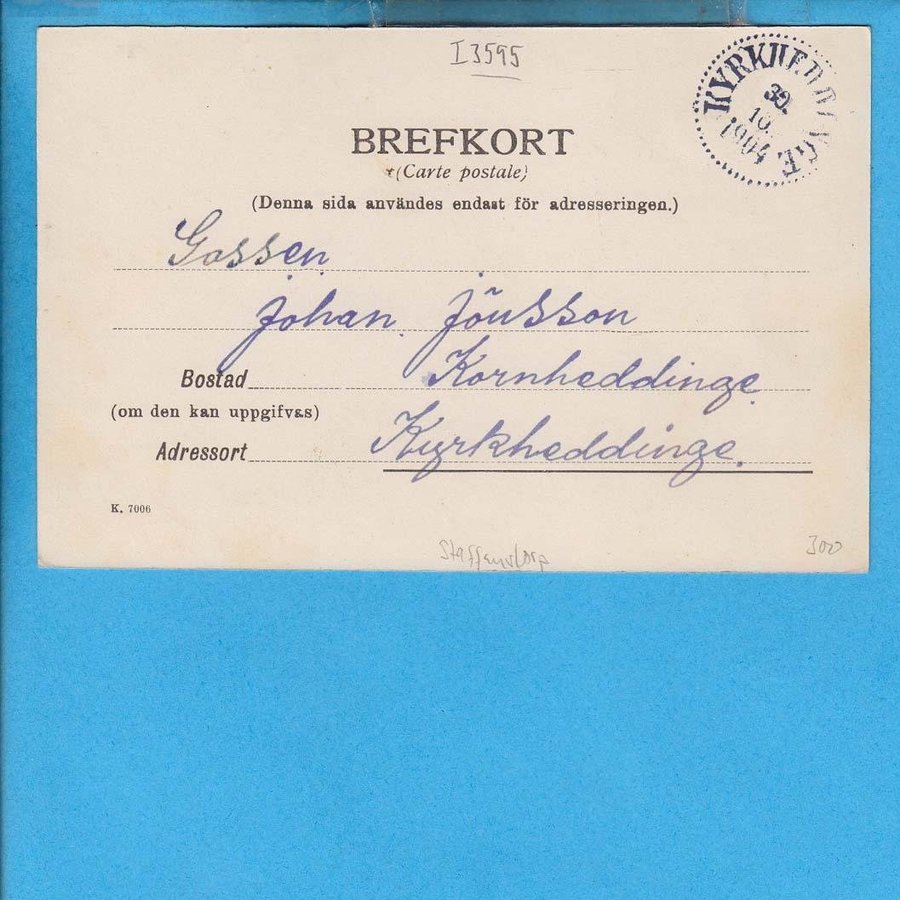 I 3595
KYRKHEDDINGE
30.
10.
1904
BREFKORT
(Carte postale)
(Denna sida användes endast för adresseringen.)
Gossen
Johan Jönsson
Bostad Kornheddinge.
(om den kan uppgifvas)
Adressort Kyrkheddinge.
K. 7006
Staffanstorp
300